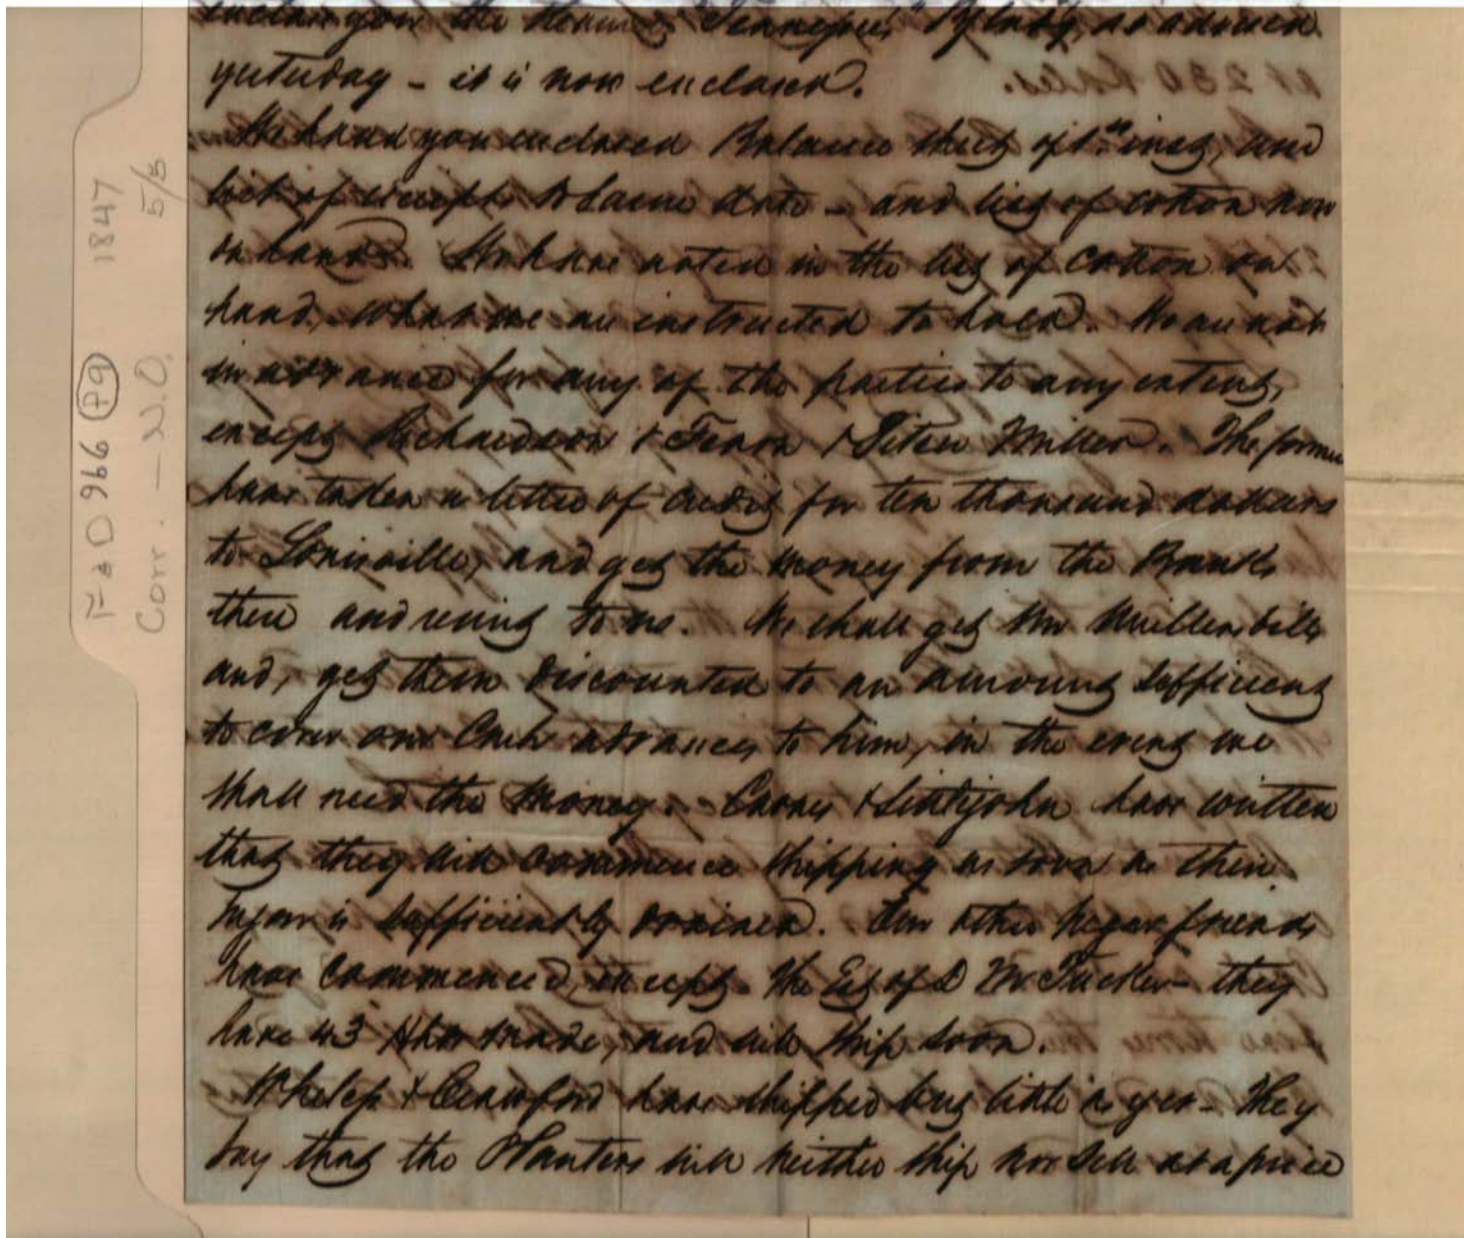 enclose you the Tennessee as advised
yesterday - it is now enclosed.
We hand you enclosed Balance Sheet of 1st inst, and
list of receipts to same date - and list of cotton now
on hand. We have noted in the list of cotton on
hand, what we are instructed to hold. We are not
in advance for any of the parties to any extent,
except Richardson & & Miller. The former
have taken a letter of credit for ten thousand dollars
to Louisville, and get the money from the Banks
there and reimb to us. We shall get Mr Millers bills
and, get them discounted to an amount sufficient
to cover our Cash advances to him, in the event we
shall need the money. & Littlejohn have written
that they will commence shipping as soon as their
sugar is sufficiently drained. Our other sugar friends
have commenced, except the Est of D M Tucker - they
have 43 Hhds made, and will ship soon.
Whelep & Crawford have shipped but little as yet - They
say that the Planters will neither ship nor sell at a price
F&D 966 P9 1847
Corr. - N.O. 5/5